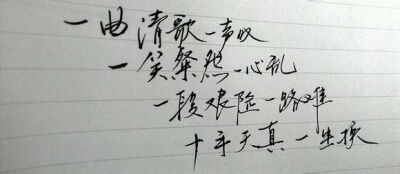 一曲清歌一声叹
一笑粲然一心乱
一段艰险一路难
十年天真一生换